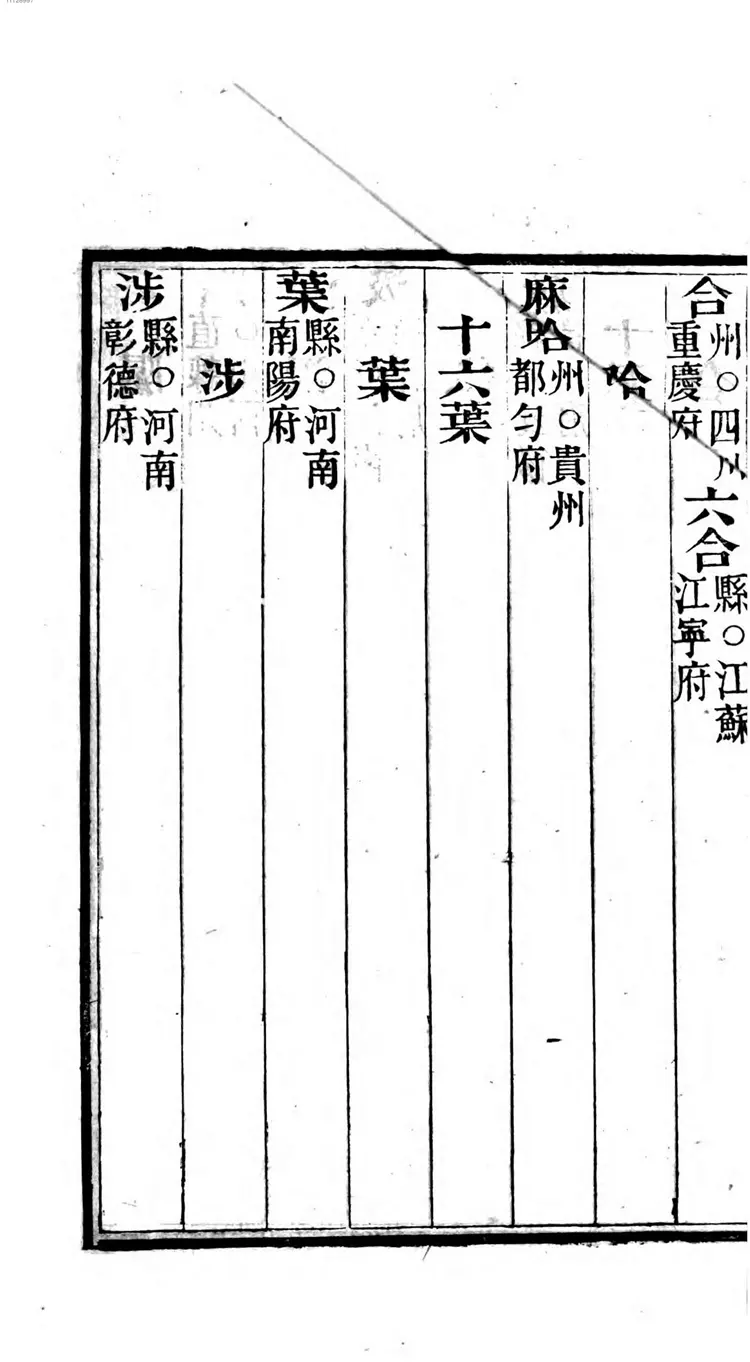 合州○四川重慶府六合縣○江蘇江寧府
哈
麻哈州○貴州都匀府
十六葉
葉
葉縣○河南南陽府
涉
涉縣○河南彰德府